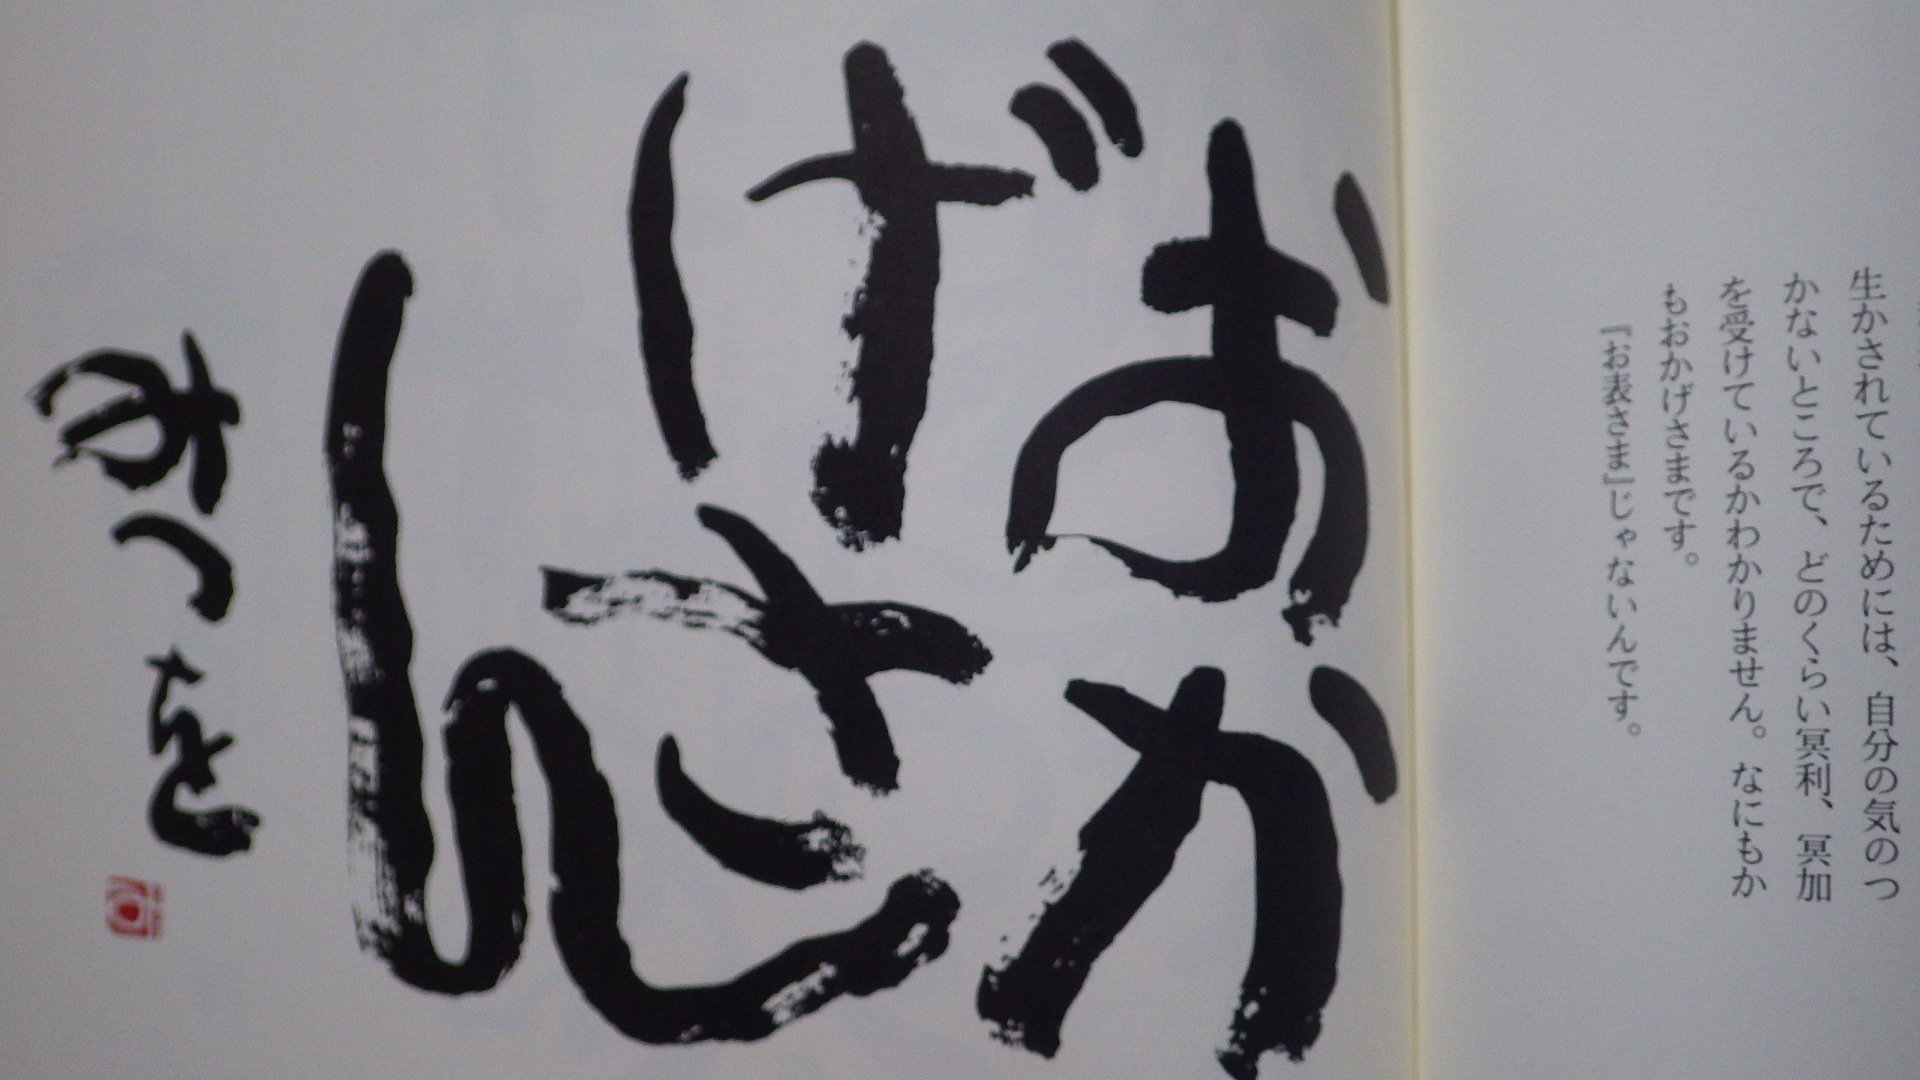 生かされているためには、自分の気のつ
かないところで、どのくらい冥利、冥加
を受けているかわかりません。なにもか
もおかげさまです。
『お表さま』じゃないんです。
おか
げさ
ん
みつを